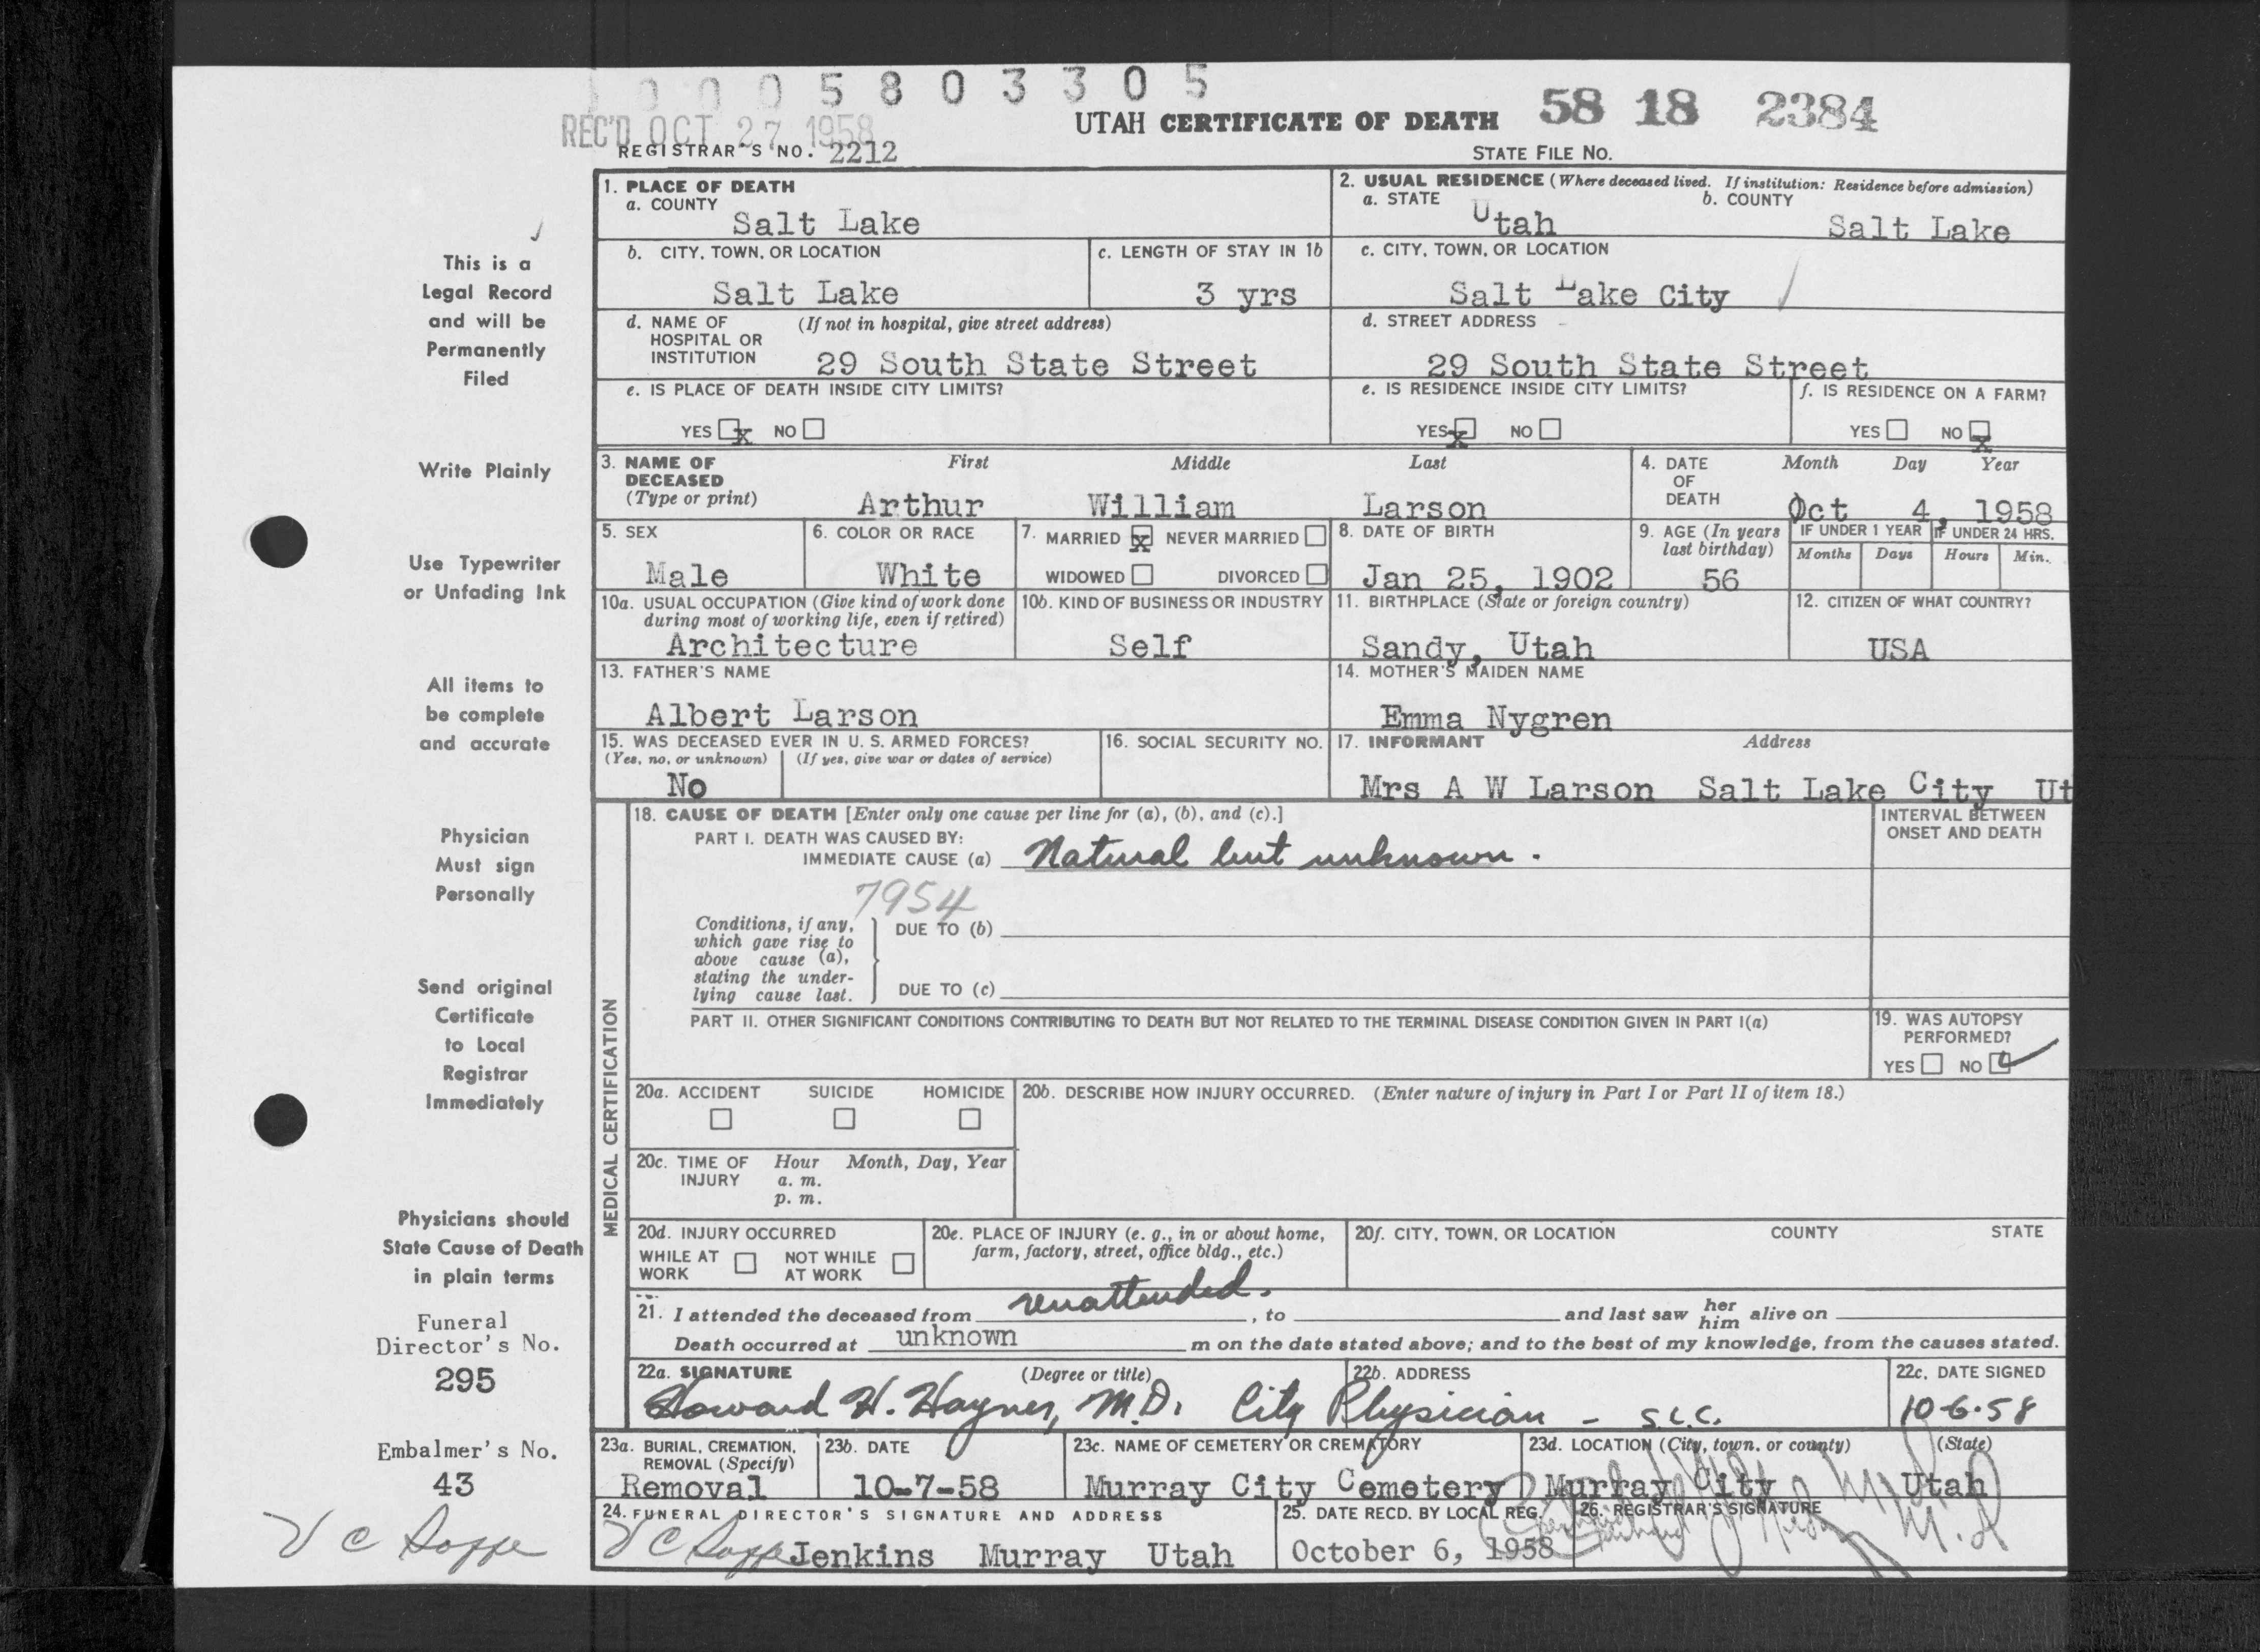 0 0 0 5 8 0 3 3 0 5
REC'D OCT 27 1958
UTAH CERTIFICATE OF DEATH 58 18 2384
REGISTRAR'S NO. 2212
STATE FILE NO.
This is a
Legal Record
and will be
Permanently
Filed
Write Plainly
Use Typewriter
or Unfading Ink
All items to
be complete
and accurate
Physician
Must sign
Personally
Send original
Certificate
to Local
Registrar
Immediately
Physicians should
State Cause of Death
in plain terms
Funeral
Director's No.
295
Embalmer's No.
43
V C
1. PLACE OF DEATH
a. COUNTY
Salt Lake
2. USUAL RESIDENCE (Where deceased lived. If institution: Residence before admission)
a. STATE Utah b. COUNTY Salt Lake
b. CITY, TOWN, OR LOCATION
Salt Lake
c. LENGTH OF STAY IN 1b
3 yrs
c. CITY, TOWN, OR LOCATION
Salt Lake City
d. NAME OF (If not in hospital, give street address)
HOSPITAL OR
INSTITUTION 29 South State Street
d. STREET ADDRESS
29 South State Street
e. IS PLACE OF DEATH INSIDE CITY LIMITS?
YES x NO
e. IS RESIDENCE INSIDE CITY LIMITS?
YES x NO
f. IS RESIDENCE ON A FARM?
YES NO x
3. NAME OF First Middle Last
DECEASED
(Type or print) Arthur William Larson
4. DATE Month Day Year
OF
DEATH Oct 4, 1958
5. SEX
Male
6. COLOR OR RACE
White
7. MARRIED x NEVER MARRIED
WIDOWED DIVORCED
8. DATE OF BIRTH
Jan 25, 1902
9. AGE (In years
last birthday)
56
IF UNDER 1 YEAR IF UNDER 24 HRS.
Months Days Hours Min.
10a. USUAL OCCUPATION (Give kind of work done
during most of working life, even if retired)
Architecture
10b. KIND OF BUSINESS OR INDUSTRY
Self
11. BIRTHPLACE (State or foreign country)
Sandy, Utah
12. CITIZEN OF WHAT COUNTRY?
USA
13. FATHER'S NAME
Albert Larson
14. MOTHER'S MAIDEN NAME
Emma Nygren
15. WAS DECEASED EVER IN U. S. ARMED FORCES?
(Yes, no, or unknown) (If yes, give war or dates of service)
No
16. SOCIAL SECURITY NO.
17. INFORMANT Address
Mrs A W Larson Salt Lake City Ut
MEDICAL CERTIFICATION
18. CAUSE OF DEATH [Enter only one cause per line for (a), (b), and (c).]
PART I. DEATH WAS CAUSED BY:
IMMEDIATE CAUSE (a) Natural but unknown.
INTERVAL BETWEEN
ONSET AND DEATH
7954
Conditions, if any,
which gave rise to
above cause (a),
stating the under-
lying cause last.
DUE TO (b)
DUE TO (c)
PART II. OTHER SIGNIFICANT CONDITIONS CONTRIBUTING TO DEATH BUT NOT RELATED TO THE TERMINAL DISEASE CONDITION GIVEN IN PART I(a)
19. WAS AUTOPSY
PERFORMED?
YES NO
20a. ACCIDENT SUICIDE HOMICIDE
20b. DESCRIBE HOW INJURY OCCURRED. (Enter nature of injury in Part I or Part II of item 18.)
20c. TIME OF Hour Month, Day, Year
INJURY a. m.
p. m.
20d. INJURY OCCURRED
WHILE AT NOT WHILE
WORK AT WORK
20e. PLACE OF INJURY (e. g., in or about home,
farm, factory, street, office bldg., etc.)
20f. CITY, TOWN, OR LOCATION COUNTY STATE
21. I attended the deceased from unattended. , to and last saw her him alive on
Death occurred at unknown m on the date stated above; and to the best of my knowledge, from the causes stated.
22a. SIGNATURE (Degree or title)
Howard H. Haynes, M.D. City Physician - S.L.C.
22b. ADDRESS
22c. DATE SIGNED
10-6-58
23a. BURIAL, CREMATION,
REMOVAL (Specify)
Removal
23b. DATE
10-7-58
23c. NAME OF CEMETERY OR CREMATORY
Murray City Cemetery
23d. LOCATION (City, town, or county) (State)
Murray City Utah
24. FUNERAL DIRECTOR'S SIGNATURE AND ADDRESS
V C Jenkins Murray Utah
25. DATE RECD. BY LOCAL REG.
October 6, 1958
26. REGISTRAR'S SIGNATURE